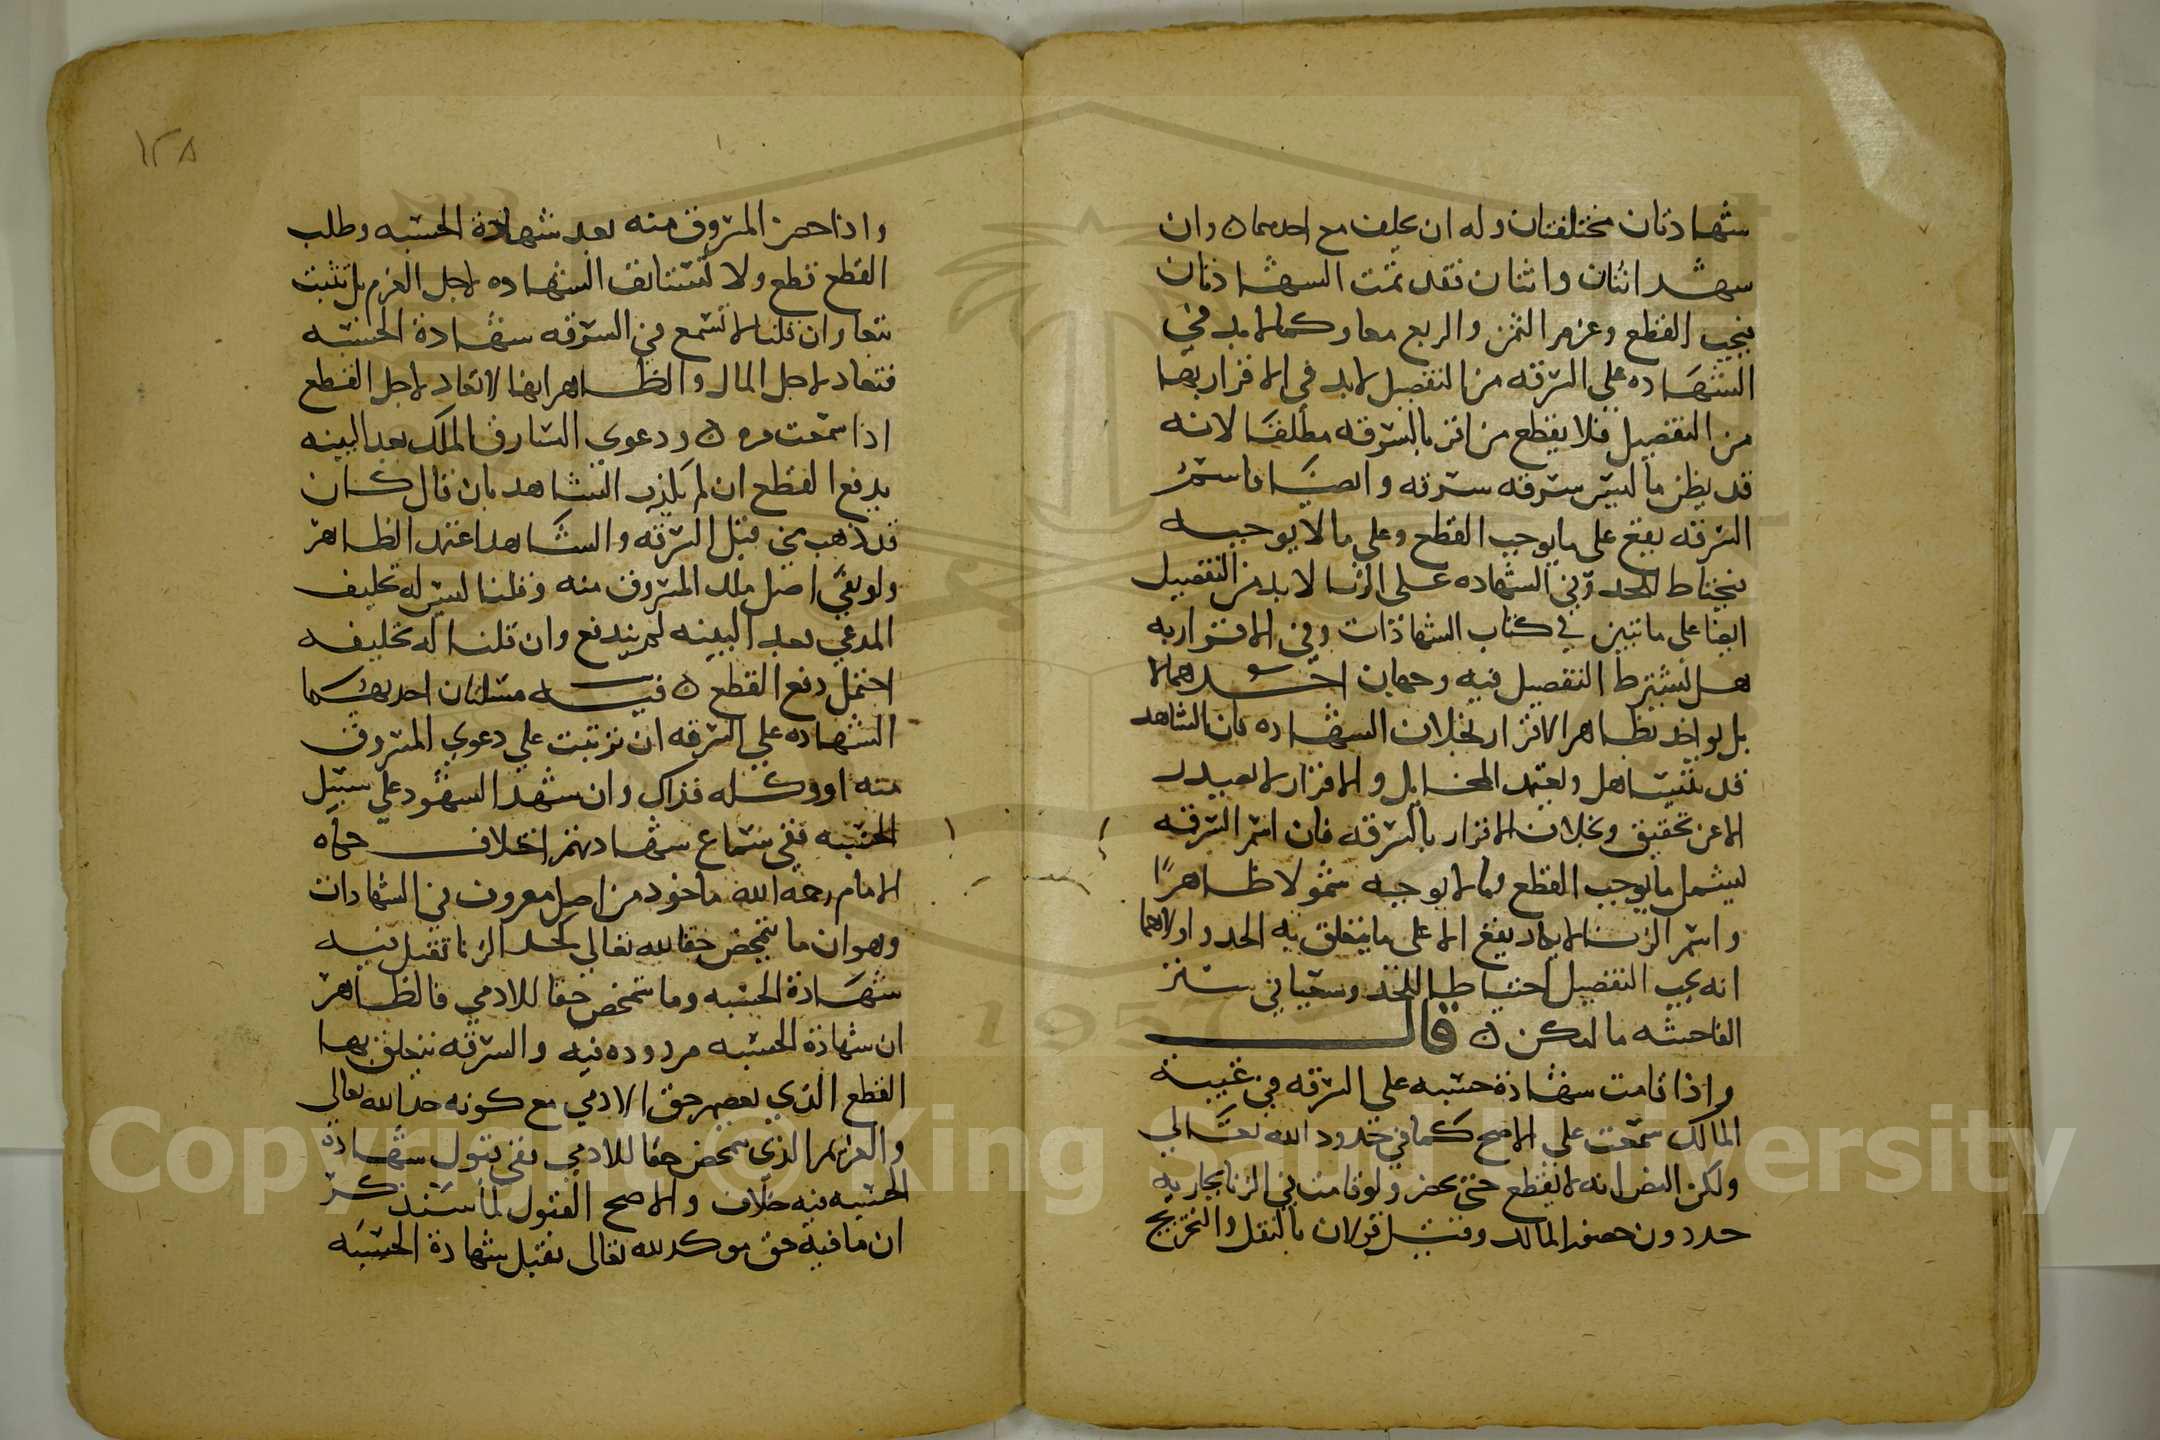 شهادتان مختلفتان وله ان يحلف مع احدهما ن وان
شهد اثنان واثنان فقد تمت الشهادتان
فيجب القطع وغرم الثمن والربع معا وكما لا بد في
الشهاده على السرقه من التفصيل لا بد في الاقرار بها
من التفصيل فلا يقطع من اقر بالسرقه مطلقا لانه
قد يظن ما ليس سرقه سرقه وايضا فاسم
السرقه يقع على ما يوجب القطع وعلى ما لا يوجبه
فيحتاط للحد وفي الشهاده على الزنا لا بد من التفصيل
ايضا على ما تبين في كتاب الشهادات وفي الاقرار به
هل يشترط التفصيل فيه وجهان احدهما لا
بل يواخذ بظاهر الاقرار بخلاف الشهاده فان الشاهد
قد يتساهل ويعتمد المخايل والاقرار لا يصدر
الا عن تحقيق وبخلاف الاقرار بالسرقه فان اسم السرقه
يشمل ما يوجب القطع وما لا يوجبه شمولا ظاهرًا
واسم الزنا لا يكاد يقع الا على ما يتعلق به الحد واولاهما
انه يجب التفصيل احتياطا للحد وسعيا في ستر
الفاحشه ما امكن ن قال
واذا قامت شهادة حسبه على السرقه في غيبة
المالك سمعت على الاصح كما في حدود الله تعالى
ولكن النص انه لا يقطع حتى يحضر ولو قامت في الزنا بجاريه
حد دون حضور المالك وقيل قولان بالنقل والتخريج
١٢٨
واذا حضر المسروق منه بعد شهادة الحسبه وطلب
القطع قطع ولا تستانف الشهاده لاجل الغرم بل تثبت
تبعا وان قلنا لا تسمع في السرقه شهادة الحسبه
فتعاد لاجل المال والظاهر انها لا تعاد لاجل القطع
اذا سمعت مره ن ودعوى السارق الملك بعد البينه
يدفع القطع ان لم يكذب الشاهد بان قال كان
قد ذهب مني قبل السرقه والشاهد اعتمد الظاهر
ولو نفى اصل ملك المسروق منه وقلنا ليس له تحليف
المدعي بعد البينه لم يندفع وان قلنا له تحليفه
احتمل دفع القطع ن فيه مسلتان احديهما
الشهاده على السرقه ان ترتبت على دعوى المسروق
منه او وكيله فذاك وان شهد الشهود على سبيل
الحسبه ففي سماع شهادتهم اختلاف حكاه
الامام رحمه الله ماخوذ من اصل معروف في الشهادات
وهو ان ما يتمحض حقا لله تعالى كحد الزنا تقبل فيه
شهادة الحسبه وما يتمحض حقا للادمي فالظاهر
ان شهادة الحسبه مردوده فيه والسرقه يتعلق بها
القطع الذي يعصم حق الادمي مع كونه حدا لله تعالى
والغرم الذي يتمحض حقا للادمي ففي قبول شهادة
الحسبه فيه خلاف والاصح القبول لما سنذكر
ان ما فيه حق موكد لله تعالى تقبل شهادة الحسبه
Copyright © King Saud University
1957